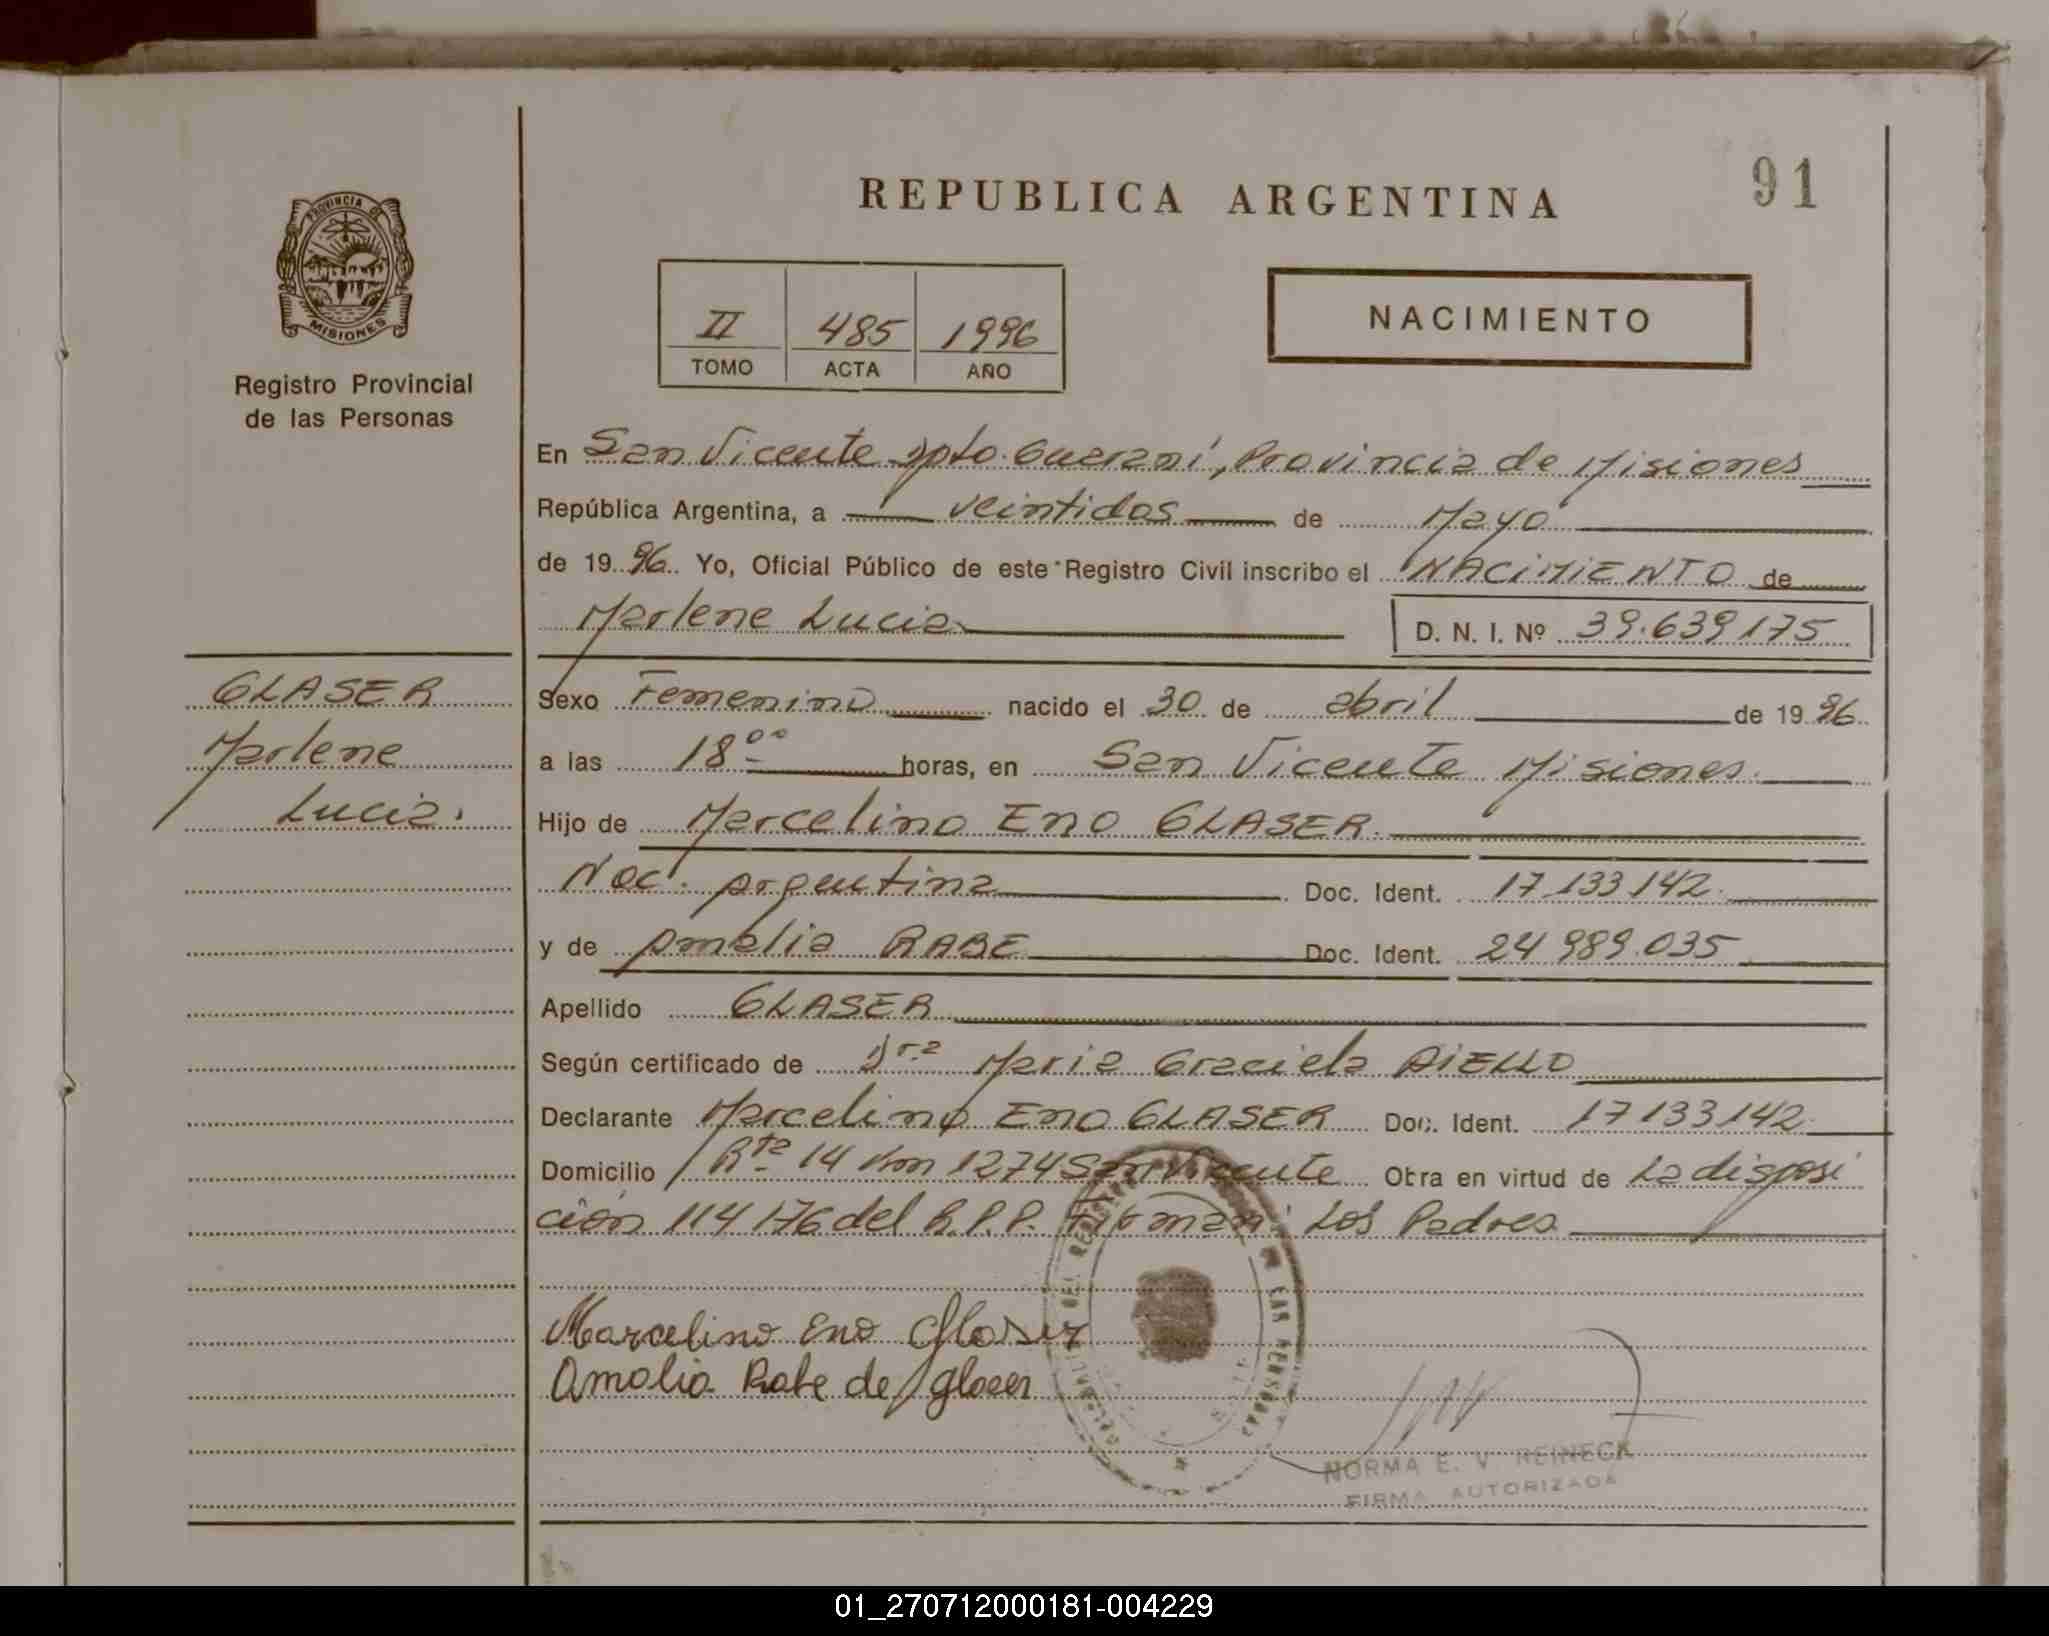 91
REPUBLICA ARGENTINA
PROVINCIA DE
MISIONES
Registro Provincial
de las Personas
II 485 1996
TOMO ACTA AÑO
NACIMIENTO
En San Vicente Dpto. Guaraní, Provincia de Misiones
República Argentina, a veintidos de Mayo
de 19 96 Yo, Oficial Público de este Registro Civil inscribo el NACIMIENTO de
Marlene Lucia D. N. I. Nº 39.639175
GLASER
Marlene
Lucia.
Sexo Femenino nacido el 30 de abril de 19 96
a las 18°° horas, en San Vicente Misiones.
Hijo de Marcelino Eno GLASER.
Nac. argentina Doc. Ident. 17.133.142.
y de Amalia RABE Doc. Ident. 24 989.035
Apellido GLASER
Según certificado de Dra Maria Graciela AiELLO
Declarante Marcelino Eno GLASER Doc. Ident. 17133142
Domicilio Rta 14 Km 1274 San Vicente Obra en virtud de La disposi
ción 114 176 del R.P.P. Firman: Los Padres
Marcelino Eno Glaser
Amalia Rabe de glaser
DEL REGISTRO DE LAS PERSONAS
NORMA E. V. REINECK
FIRMA AUTORIZADA
01_270712000181-004229